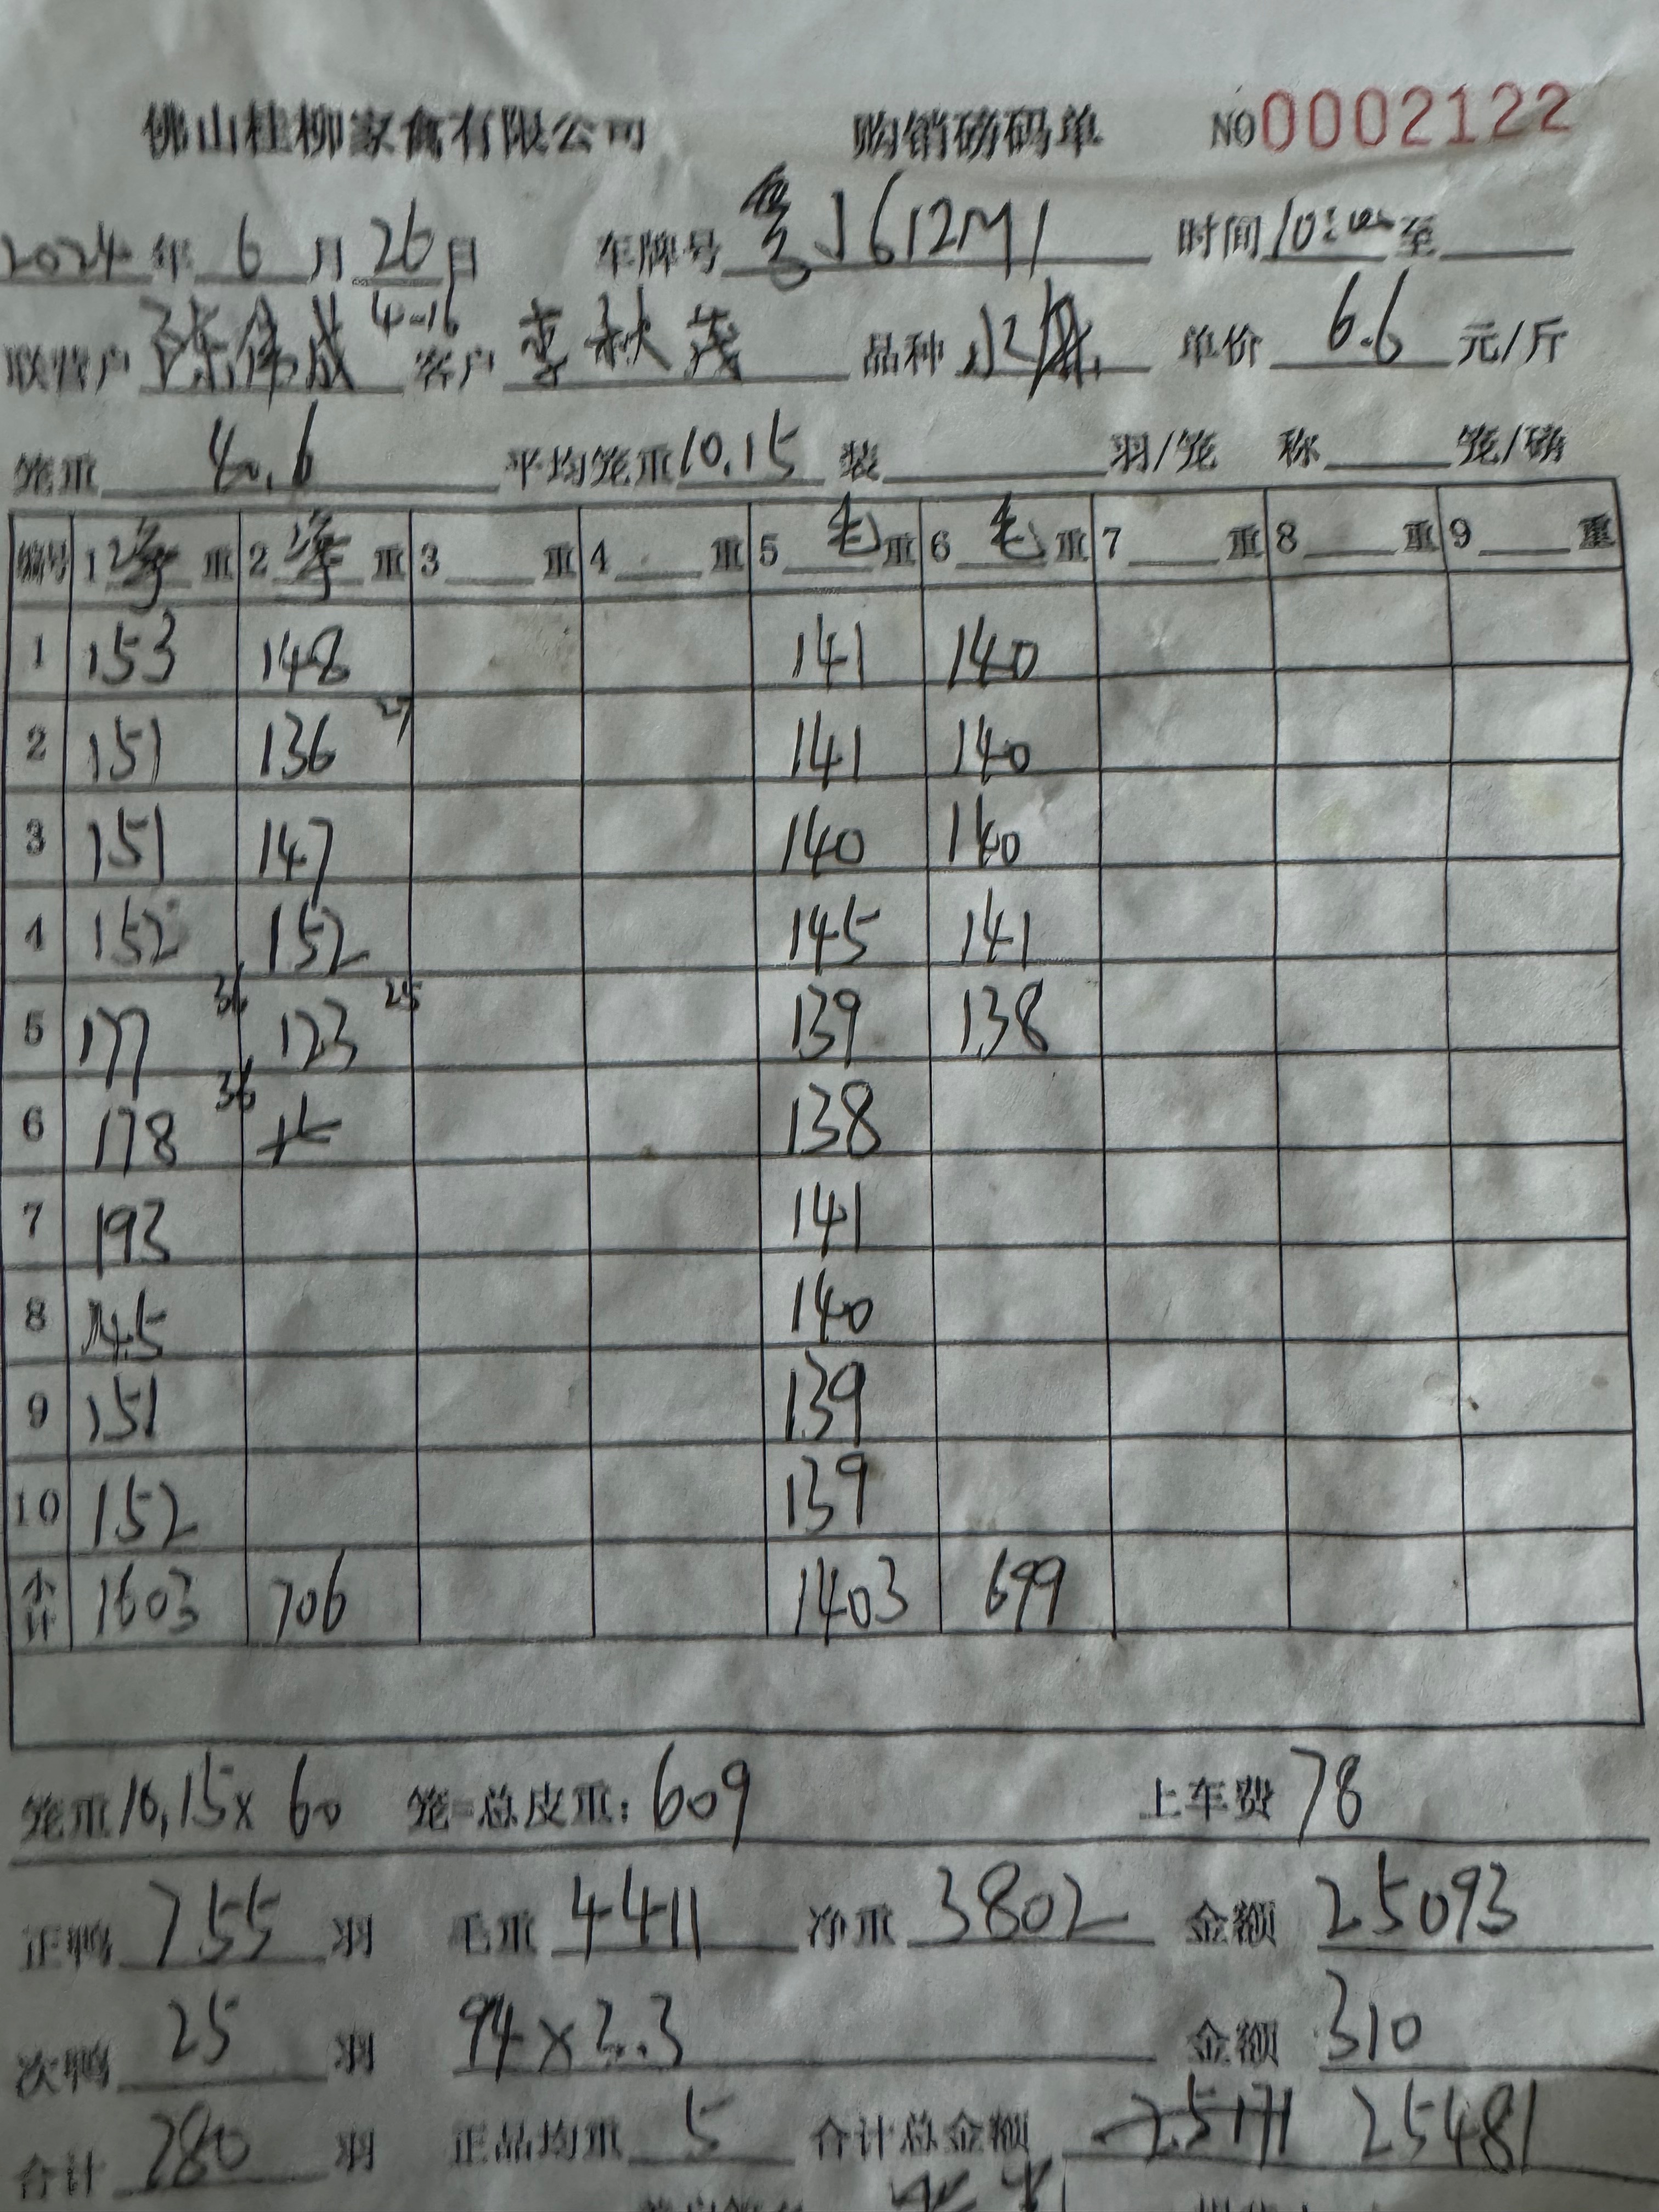 佛山桂柳家禽有限公司 购销磅码单 NO 0002122
2024 年 6 月 26 日 车牌号 粤J612M1 时间 10: 至
4-16
联营户 陈伟成 客户 李秋茂 品种 单价 6.6 元/斤
笼重 40.6 平均笼重 10.15 装 羽/笼 称 笼/磅
编号 1 重 2 重 3 重 4 重 5 毛 重 6 毛 重 7 重 8 重 9 重
1 153 148 141 140
2 151 136 27 141 140
3 151 147 140 140
4 152 152 145 141
5 177 36 123 25 139 138
6 178 36 138
7 193 141
8 145 140
9 151 139
10 152 139
小计 1603 706 1403 699
笼重 10.15 x 60 笼=总皮重: 609 上车费 78
正鸭 755 羽 毛重 4411 净重 3802 金额 25093
次鸭 25 羽 94 x 3.3 金额 310
合计 780 羽 正品均重 5 合计总金额 25171 25481